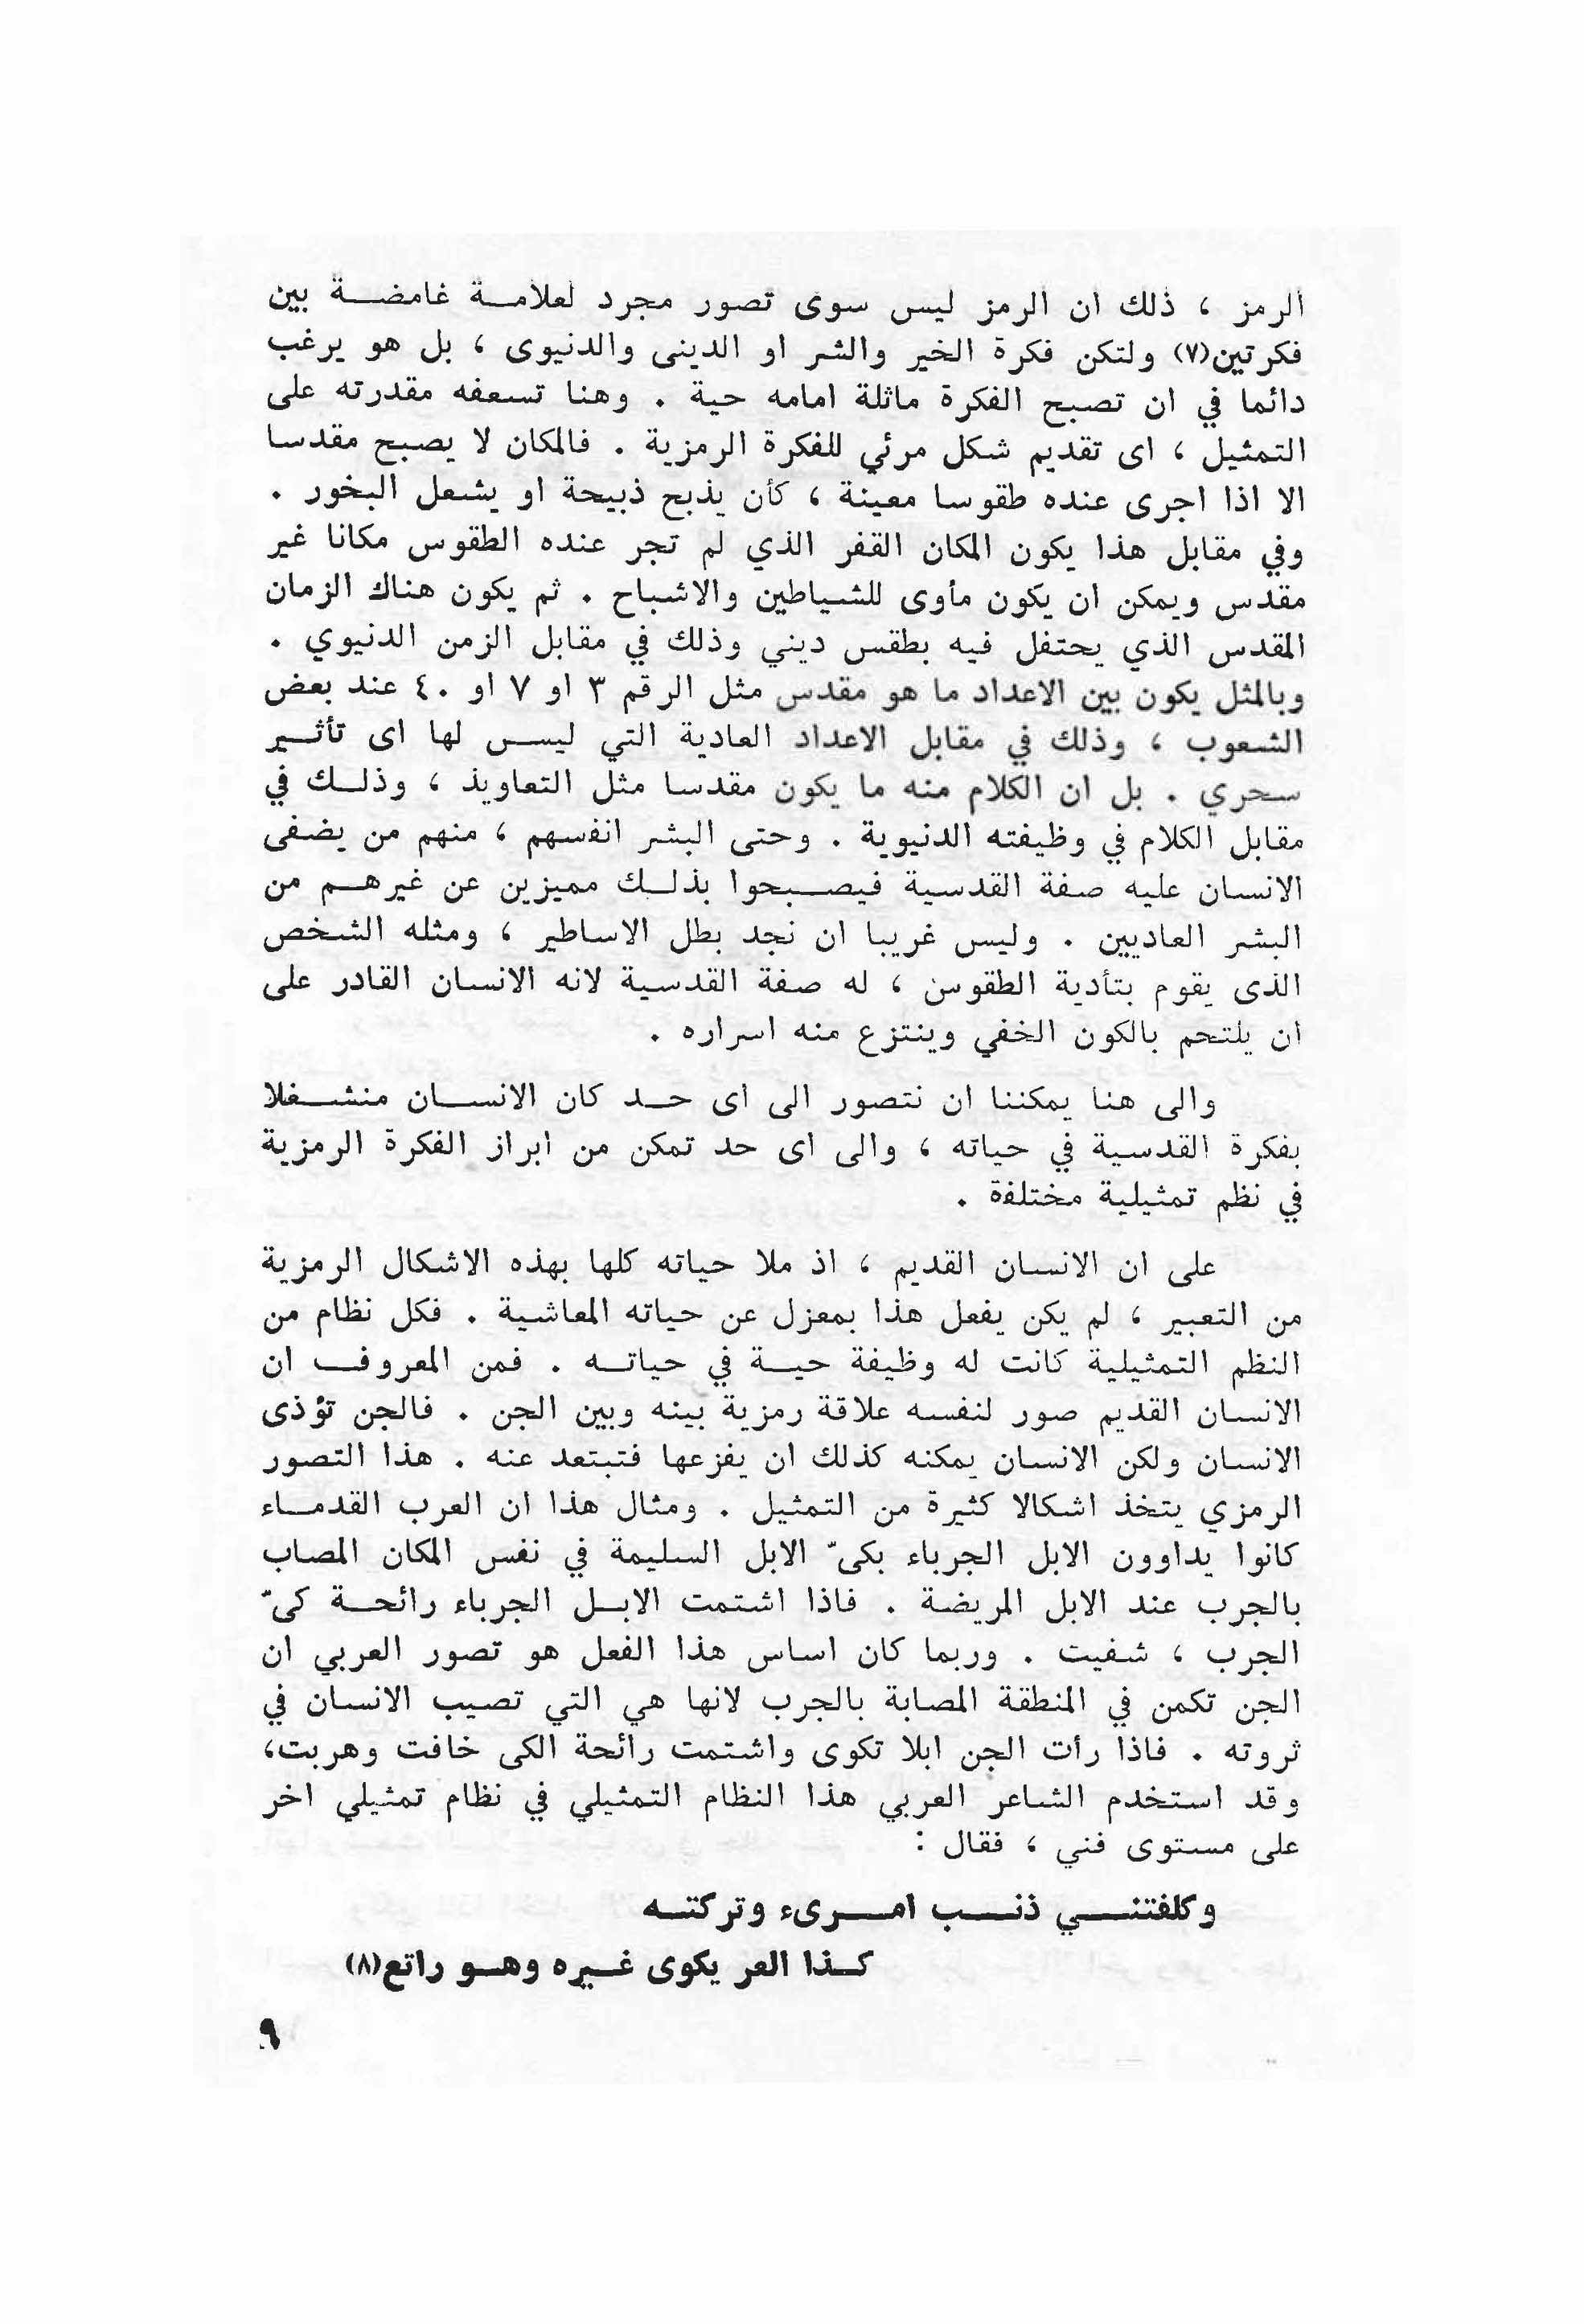 الرمز ، ذلك ان الرمز ليس سوى تصور مجرد لعلامة غامضة بين
فكرتين(٧) ولتكن فكرة الخير والشر او الدينى والدنيوى ، بل هو يرغب
دائما في ان تصبح الفكرة ماثلة امامه حية . وهنا تسعفه مقدرته على
التمثيل ، اى تقديم شكل مرئي للفكرة الرمزية . فالمكان لا يصبح مقدسا
الا اذا اجرى عنده طقوسا معينة ، كأن يذبح ذبيحة او يشعل البخور .
وفي مقابل هذا يكون المكان القفر الذي لم تجر عنده الطقوس مكانا غير
مقدس ويمكن ان يكون مأوى للشياطين والاشباح . ثم يكون هناك الزمان
المقدس الذي يحتفل فيه بطقس ديني وذلك في مقابل الزمن الدنيوي .
وبالمثل يكون بين الاعداد ما هو مقدس مثل الرقم ٣ او ٧ او ٤٠ عند بعض
الشعوب ، وذلك في مقابل الاعداد العادية التي ليس لها اى تأثير
سحري . بل ان الكلام منه ما يكون مقدسا مثل التعاويذ ، وذلك في
مقابل الكلام في وظيفته الدنيوية . وحتى البشر انفسهم ، منهم من يضفى
الانسان عليه صفة القدسية فيصبحوا بذلك مميزين عن غيرهم من
البشر العاديين . وليس غريبا ان نجد بطل الاساطير ، ومثله الشخص
الذى يقوم بتأدية الطقوس ، له صفة القدسية لانه الانسان القادر على
ان يلتحم بالكون الخفي وينتزع منه اسراره .
والى هنا يمكننا ان نتصور الى اى حد كان الانسان منشغلا
بفكرة القدسية في حياته ، والى اى حد تمكن من ابراز الفكرة الرمزية
في نظم تمثيلية مختلفة .
على ان الانسان القديم ، اذ ملا حياته كلها بهذه الاشكال الرمزية
من التعبير ، لم يكن يفعل هذا بمعزل عن حياته المعاشية . فكل نظام من
النظم التمثيلية كانت له وظيفة حية في حياته . فمن المعروف ان
الانسان القديم صور لنفسه علاقة رمزية بينه وبين الجن . فالجن تؤذى
الانسان ولكن الانسان يمكنه كذلك ان يفزعها فتبتعد عنه . هذا التصور
الرمزي يتخذ اشكالا كثيرة من التمثيل . ومثال هذا ان العرب القدماء
كانوا يداوون الابل الجرباء بكىّ الابل السليمة في نفس المكان المصاب
بالجرب عند الابل المريضة . فاذا اشتمت الابل الجرباء رائحة كىّ
الجرب ، شفيت . وربما كان اساس هذا الفعل هو تصور العربي ان
الجن تكمن في المنطقة المصابة بالجرب لانها هي التي تصيب الانسان في
ثروته . فاذا رأت الجن ابلا تكوى واشتمت رائحة الكى خافت وهربت،
وقد استخدم الشاعر العربي هذا النظام التمثيلي في نظام تمثيلي اخر
على مستوى فني ، فقال :
وكلفتني ذنب امرىء وتركته
كذا العر يكوى غيره وهو راتع(٨)
٩